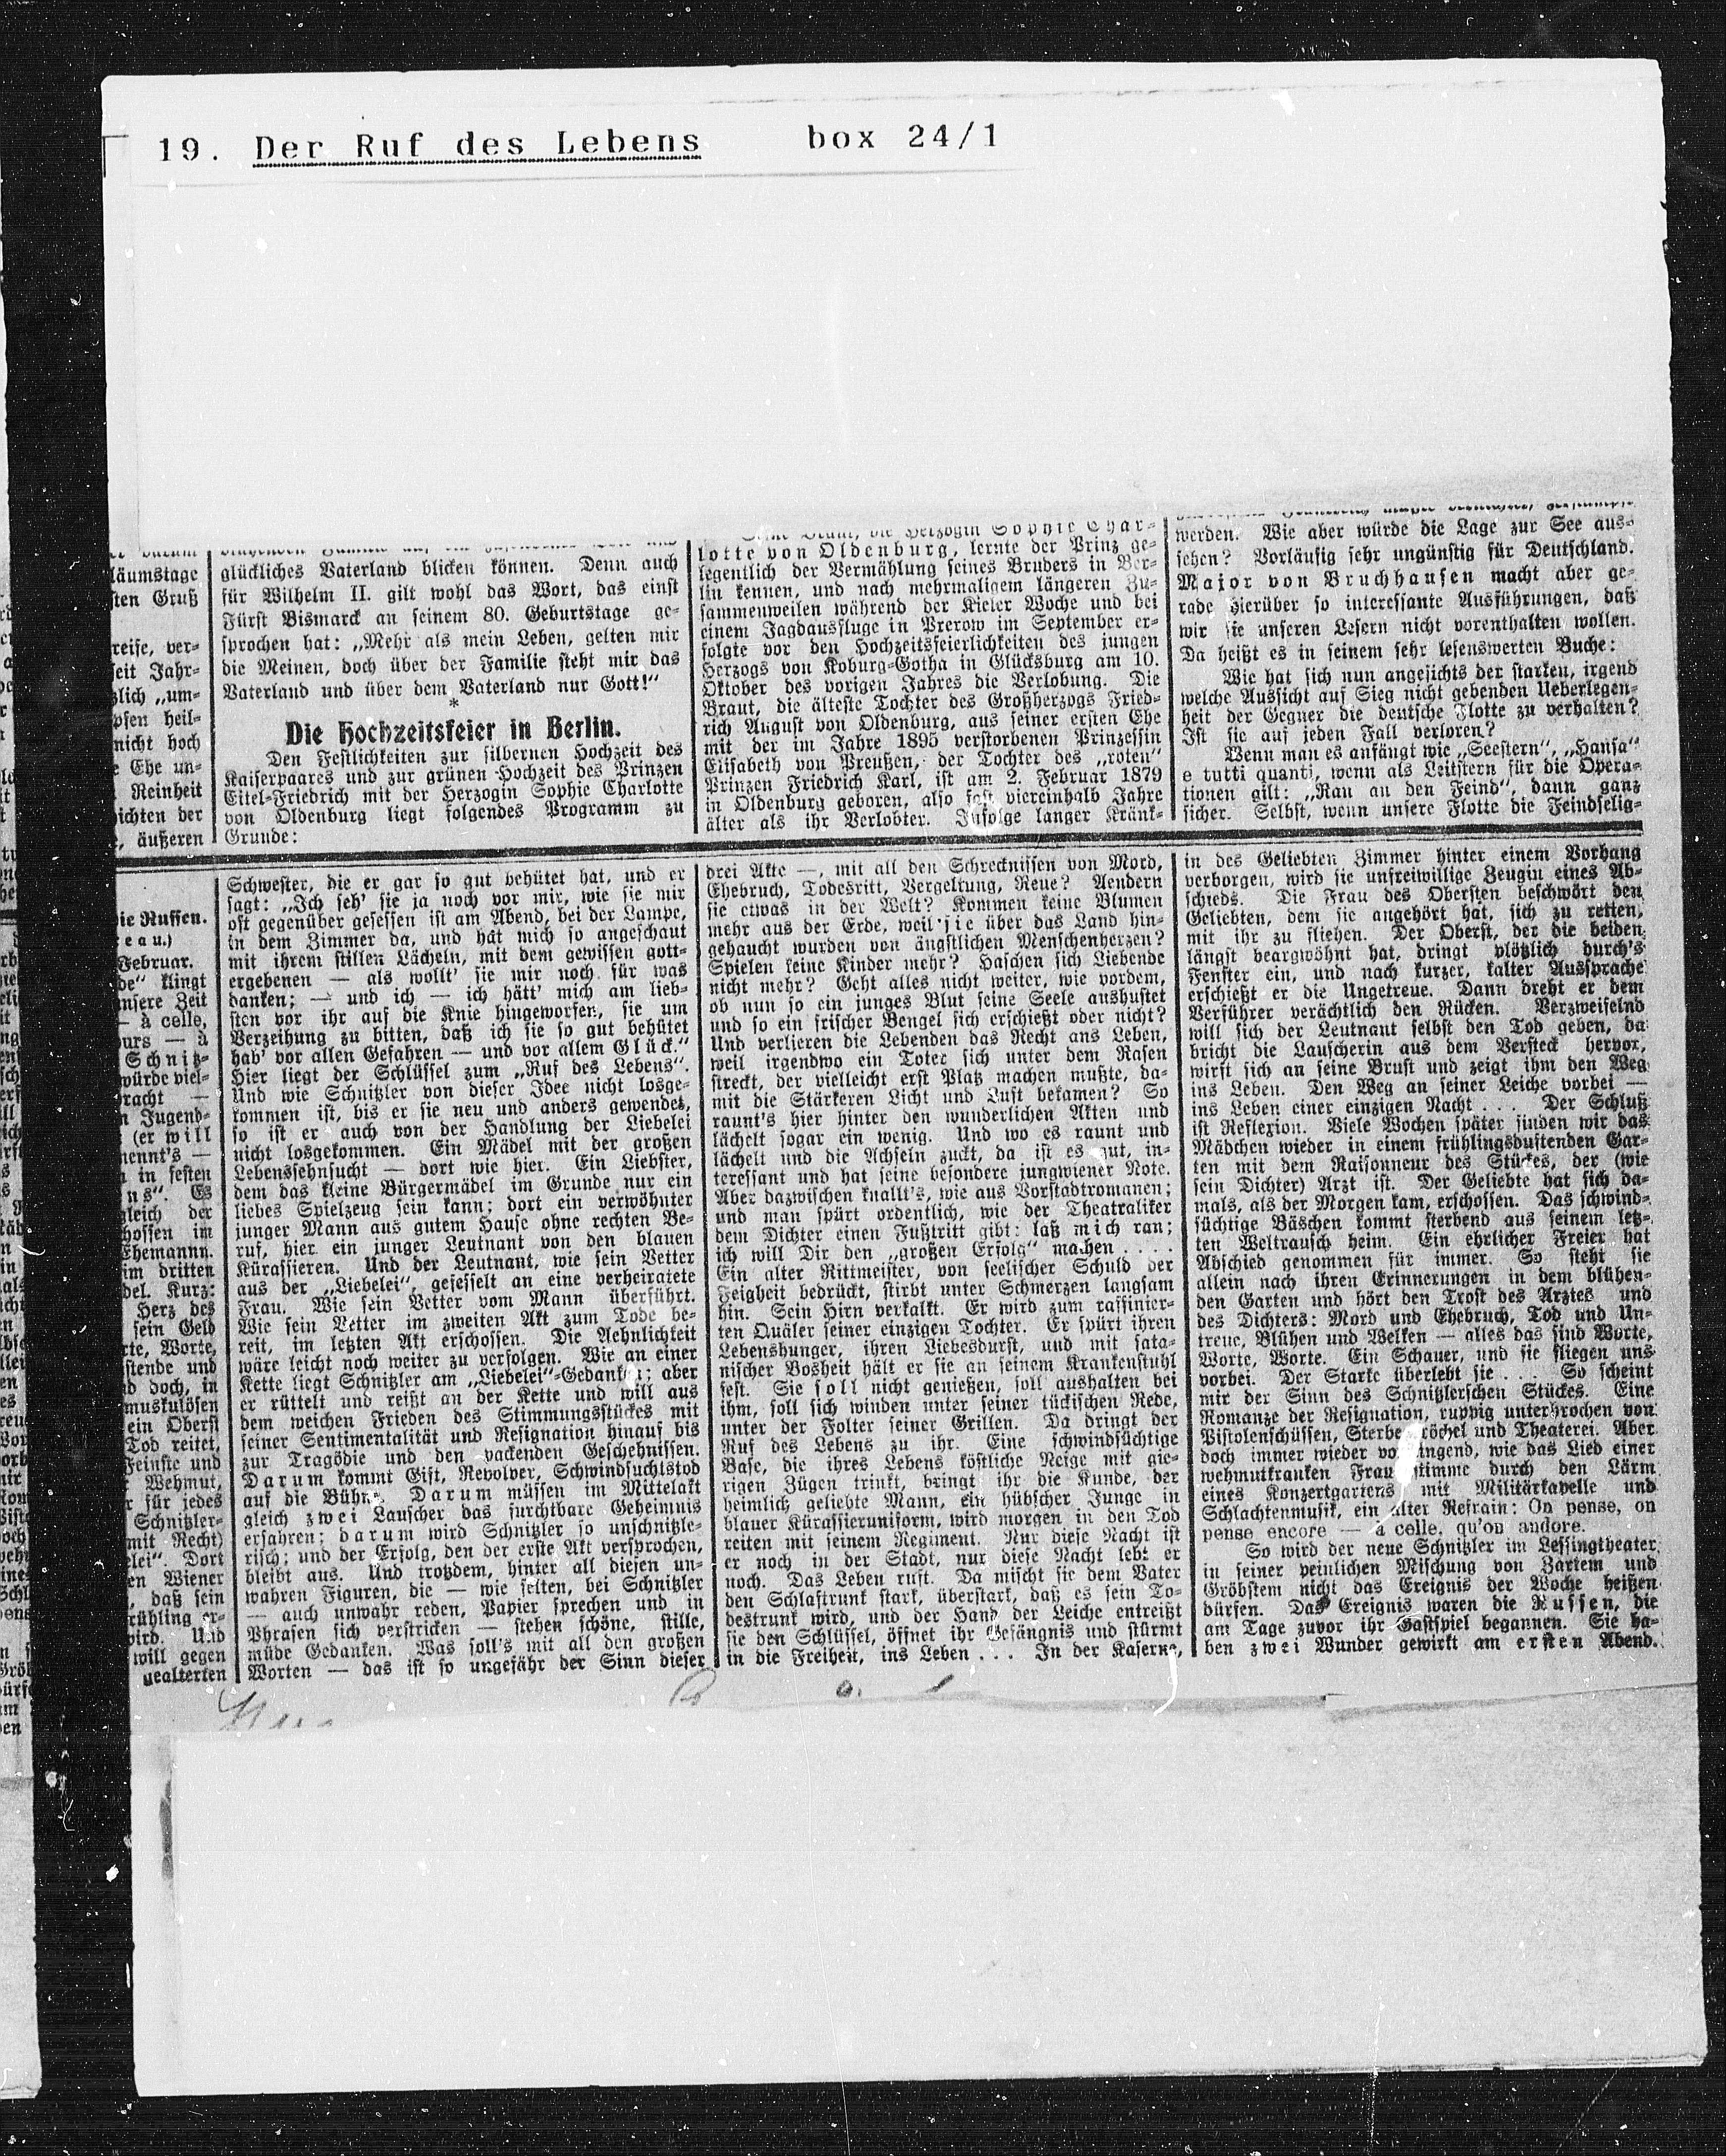 19. Der Ruf des Lebens box 24/1
läumstage
sten Gruß
reise, ver-
seit Jahr-
zlich „um-
pfen heil-
nicht hoch
e Ehe un-
Reinheit
ichten der
, äußeren
glückliches Vaterland blicken können. Denn auch
für Wilhelm II. gilt wohl das Wort, das einst
Fürst Bismarck an seinem 80. Geburtstage ge-
sprochen hat: „Mehr als mein Leben, gelten mir
die Meinen, doch über der Familie steht mir das
Vaterland und über dem Vaterland nur Gott!“
*
Die Hochzeitsfeier in Berlin.
Den Festlichkeiten zur silbernen Hochzeit des
Kaiserpaares und zur grünen Hochzeit des Prinzen
Eitel-Friedrich mit der Herzogin Sophie Charlotte
von Oldenburg liegt folgendes Programm zu
Grunde:
die Herzogin Sophie Char-
lotte von Oldenburg, lernte der Prinz ge-
legentlich der Vermählung seines Bruders in Ber-
lin kennen, und nach mehrmaligem längeren Zu-
sammenweilen während der Kieler Woche und bei
einem Jagdausfluge in Prerow im September er-
folgte vor den Hochzeitsfeierlichkeiten des jungen
Herzogs von Koburg-Gotha in Glücksburg am 10.
Oktober des vorigen Jahres die Verlobung. Die
Braut, die älteste Tochter des Großherzogs Fried-
rich August von Oldenburg, aus seiner ersten Ehe
mit der im Jahre 1895 verstorbenen Prinzessin
Elisabeth von Preußen, der Tochter des „roten“
Prinzen Friedrich Karl, ist am 2. Februar 1879
in Oldenburg geboren, also fast viereinhalb Jahre
älter als ihr Verlobter. Infolge langer Kränk-
werden. Wie aber würde die Lage zur See aus-
sehen? Vorläufig sehr ungünstig für Deutschland.
Major von Bruchhausen macht aber ge-
rade hierüber so interessante Ausführungen, daß
wir sie unseren Lesern nicht vorenthalten wollen.
Da heißt es in seinem sehr lesenswerten Buche:
Wie hat sich nun angesichts der starken, irgend
welche Aussicht auf Sieg nicht gebenden Ueberlegen-
heit der Gegner die deutsche Flotte zu verhalten?
Ist sie auf jeden Fall verloren?
Wenn man es anfängt wie „Seestern“, „Hansa“
e tutti quanti, wenn als Leitstern für die Opera-
tionen gilt: „Ran an den Feind“, dann ganz
sicher. Selbst, wenn unsere Flotte die Feindselig-
ie Russen.
eau.)
Februar.
de“ klingt
unsere Zeit
— à celle,
ours — à
Schnitz-
würde viel-
bracht —
n Jugend-
(er will
nennt's —
in festen
ns“. Es
gleich der
hossen im
Ehemann.
im dritten
del. Kurz:
Herz des
sein Geld
rte, Worte,
stende und
d doch, in
muskulösen
ein Oberst
Tod reitet,
Feinste und
Wehmut,
r für jedes
Schnitzler-
mit Recht)
lei“. Dort
en Wiener
, daß sein
rühling er-
wird. Und
will gegen
gealterten
Schwester, die er gar so gut behütet hat, und er
sagt: „Ich seh' sie ja noch vor mir, wie sie mir
oft gegenüber gesessen ist am Abend, bei der Lampe,
in dem Zimmer da, und hat mich so angeschaut
mit ihrem stillen Lächeln, mit dem gewissen gott-
ergebenen — als wollt' sie mir noch für was
danken; — und ich — ich hätt' mich am lieb-
sten vor ihr auf die Knie hingeworfen, sie um
Verzeihung zu bitten, daß ich sie so gut behütet
hab' vor allen Gefahren — und vor allem Glück.“
Hier liegt der Schlüssel zum „Ruf des Lebens“.
Und wie Schnitzler von dieser Idee nicht losge-
kommen ist, bis er sie neu und anders gewendet,
so ist er auch von der Handlung der Liebelei
nicht losgekommen. Ein Mädel mit der großen
Lebenssehnsucht — dort wie hier. Ein Liebster,
dem das kleine Bürgermädel im Grunde nur ein
liebes Spielzeug sein kann; dort ein verwöhnter
junger Mann aus gutem Hause ohne rechten Be-
ruf, hier ein junger Leutnant von den blauen
Kürassieren. Und der Leutnant, wie sein Vetter
aus der „Liebelei“, gefesselt an eine verheiratete
Frau. Wie sein Vetter vom Mann überführt.
Wie sein Vetter im zweiten Akt zum Tode be-
reit, im letzten Akt erschossen. Die Aehnlichkeit
wäre leicht noch weiter zu verfolgen. Wie an einer
Kette liegt Schnitzler am „Liebelei“-Gedanken; aber
er rüttelt und reißt an der Kette und will aus
dem weichen Frieden des Stimmungsstückes mit
seiner Sentimentalität und Resignation hinauf bis
zur Tragödie und den packenden Geschehnissen.
Darum kommt Gift, Revolver, Schwindsuchtstod
auf die Bühne. Darum müssen im Mittelakt
gleich zwei Lauscher das furchtbare Geheimnis
erfahren; darum wird Schnitzler so unschnitzle-
risch; und der Erfolg, den der erste Akt versprochen,
bleibt aus. Und trotzdem, hinter all diesen un-
wahren Figuren, die — wie selten, bei Schnitzler
— auch unwahr reden, Papier sprechen und in
Phrasen sich verstricken — stehen schöne, stille,
müde Gedanken. Was soll's mit all den großen
Worten — das ist so ungefähr der Sinn dieser
drei Akte —, mit all den Schrecknissen von Mord,
Ehebruch, Todesritt, Vergeltung, Reue? Aendern
sie etwas in der Welt? Kommen keine Blumen
mehr aus der Erde, weil sie über das Land hin-
gehaucht wurden von ängstlichen Menschenherzen?
Spielen keine Kinder mehr? Haschen sich Liebende
nicht mehr? Geht alles nicht weiter, wie vordem,
ob nun so ein junges Blut seine Seele aushustet
und so ein frischer Bengel sich erschießt oder nicht?
Und verlieren die Lebenden das Recht ans Leben,
weil irgendwo ein Toter sich unter dem Rasen
streckt, der vielleicht erst Platz machen mußte, da-
mit die Stärkeren Licht und Luft bekamen? So
raunt's hier hinter den wunderlichen Akten und
lächelt sogar ein wenig. Und wo es raunt und
lächelt und die Achseln zuckt, da ist es gut, in-
teressant und hat seine besondere jungwiener Note.
Aber dazwischen knallt's, wie aus Vorstadtromanen;
und man spürt ordentlich, wie der Theatraliker
dem Dichter einen Fußtritt gibt: laß mich ran;
ich will Dir den „großen Erfolg“ machen . . . .
Ein alter Rittmeister, von seelischer Schuld der
Feigheit bedrückt, stirbt unter Schmerzen langsam
hin. Sein Hirn verkalkt. Er wird zum raffinier-
ten Quäler seiner einzigen Tochter. Er spürt ihren
Lebenshunger, ihren Liebesdurst, und mit sata-
nischer Bosheit hält er sie an seinem Krankenstuhl
fest. Sie soll nicht genießen, soll aushalten bei
ihm, soll sich winden unter seiner tückischen Rede,
unter der Folter seiner Grillen. Da dringt der
Ruf des Lebens zu ihr. Eine schwindsüchtige
Base, die ihres Lebens köstliche Neige mit gie-
rigen Zügen trinkt, bringt ihr die Kunde, der
heimlich geliebte Mann, ein hübscher Junge in
blauer Kürassieruniform, wird morgen in den Tod
reiten mit seinem Regiment. Nur diese Nacht ist
er noch in der Stadt, nur diese Nacht lebt er
noch. Das Leben ruft. Da mischt sie dem Vater
den Schlaftrunk stark, überstark, daß es sein To-
destrunk wird, und der Hand der Leiche entreißt
sie den Schlüssel, öffnet ihr Gefängnis und stürmt
in die Freiheit, ins Leben . . . In der Kaserne,
in des Geliebten Zimmer hinter einem Vorhang
verborgen, wird sie unfreiwillige Zeugin eines Ab-
schieds. Die Frau des Obersten beschwört den
Geliebten, dem sie angehört hat, sich zu retten,
mit ihr zu fliehen. Der Oberst, der die beiden
längst beargwöhnt hat, dringt plötzlich durch's
Fenster ein, und nach kurzer, kalter Aussprache
erschießt er die Ungetreue. Dann dreht er dem
Verführer verächtlich den Rücken. Verzweifelnd
will sich der Leutnant selbst den Tod geben, da
bricht die Lauscherin aus dem Versteck hervor,
wirft sich an seine Brust und zeigt ihm den Weg
ins Leben. Den Weg an seiner Leiche vorbei —
ins Leben einer einzigen Nacht . . . Der Schluß
ist Reflexion. Viele Wochen später finden wir das
Mädchen wieder in einem frühlingsduftenden Gar-
ten mit dem Raisonneur des Stückes, der (wie
sein Dichter) Arzt ist. Der Geliebte hat sich da-
mals, als der Morgen kam, erschossen. Das schwind-
süchtige Bäschen kommt sterbend aus seinem letz-
ten Weltrausch heim. Ein ehrlicher Freier hat
Abschied genommen für immer. So steht sie
allein nach ihren Erinnerungen in dem blühen-
den Garten und hört den Trost des Arztes und
des Dichters: Mord und Ehebruch, Tod und Un-
treue, Blühen und Welken — alles das sind Worte,
Worte, Worte. Ein Schauer, und sie fliegen uns
vorbei. Der Starke überlebt sie . . . So scheint
mir der Sinn des Schnitzlerschen Stückes. Eine
Romanze der Resignation, ruppig unterbrochen von
Pistolenschüssen, Sterberöchel und Theaterei. Aber
doch immer wieder vordringend, wie das Lied einer
wehmutkranken Frauenstimme durch den Lärm
eines Konzertgartens mit Militärkapelle und
Schlachtenmusik, ein alter Refrain: On pense, on
pense encore — à celle, qu'on andore.
So wird der neue Schnitzler im Lessingtheater
in seiner peinlichen Mischung von Zartem und
Gröbstem nicht das Ereignis der Woche heißen
dürfen. Das Ereignis waren die Russen, die
am Tage zuvor ihr Gastspiel begannen. Sie ha-
ben zwei Wunder gewirkt am ersten Abend.